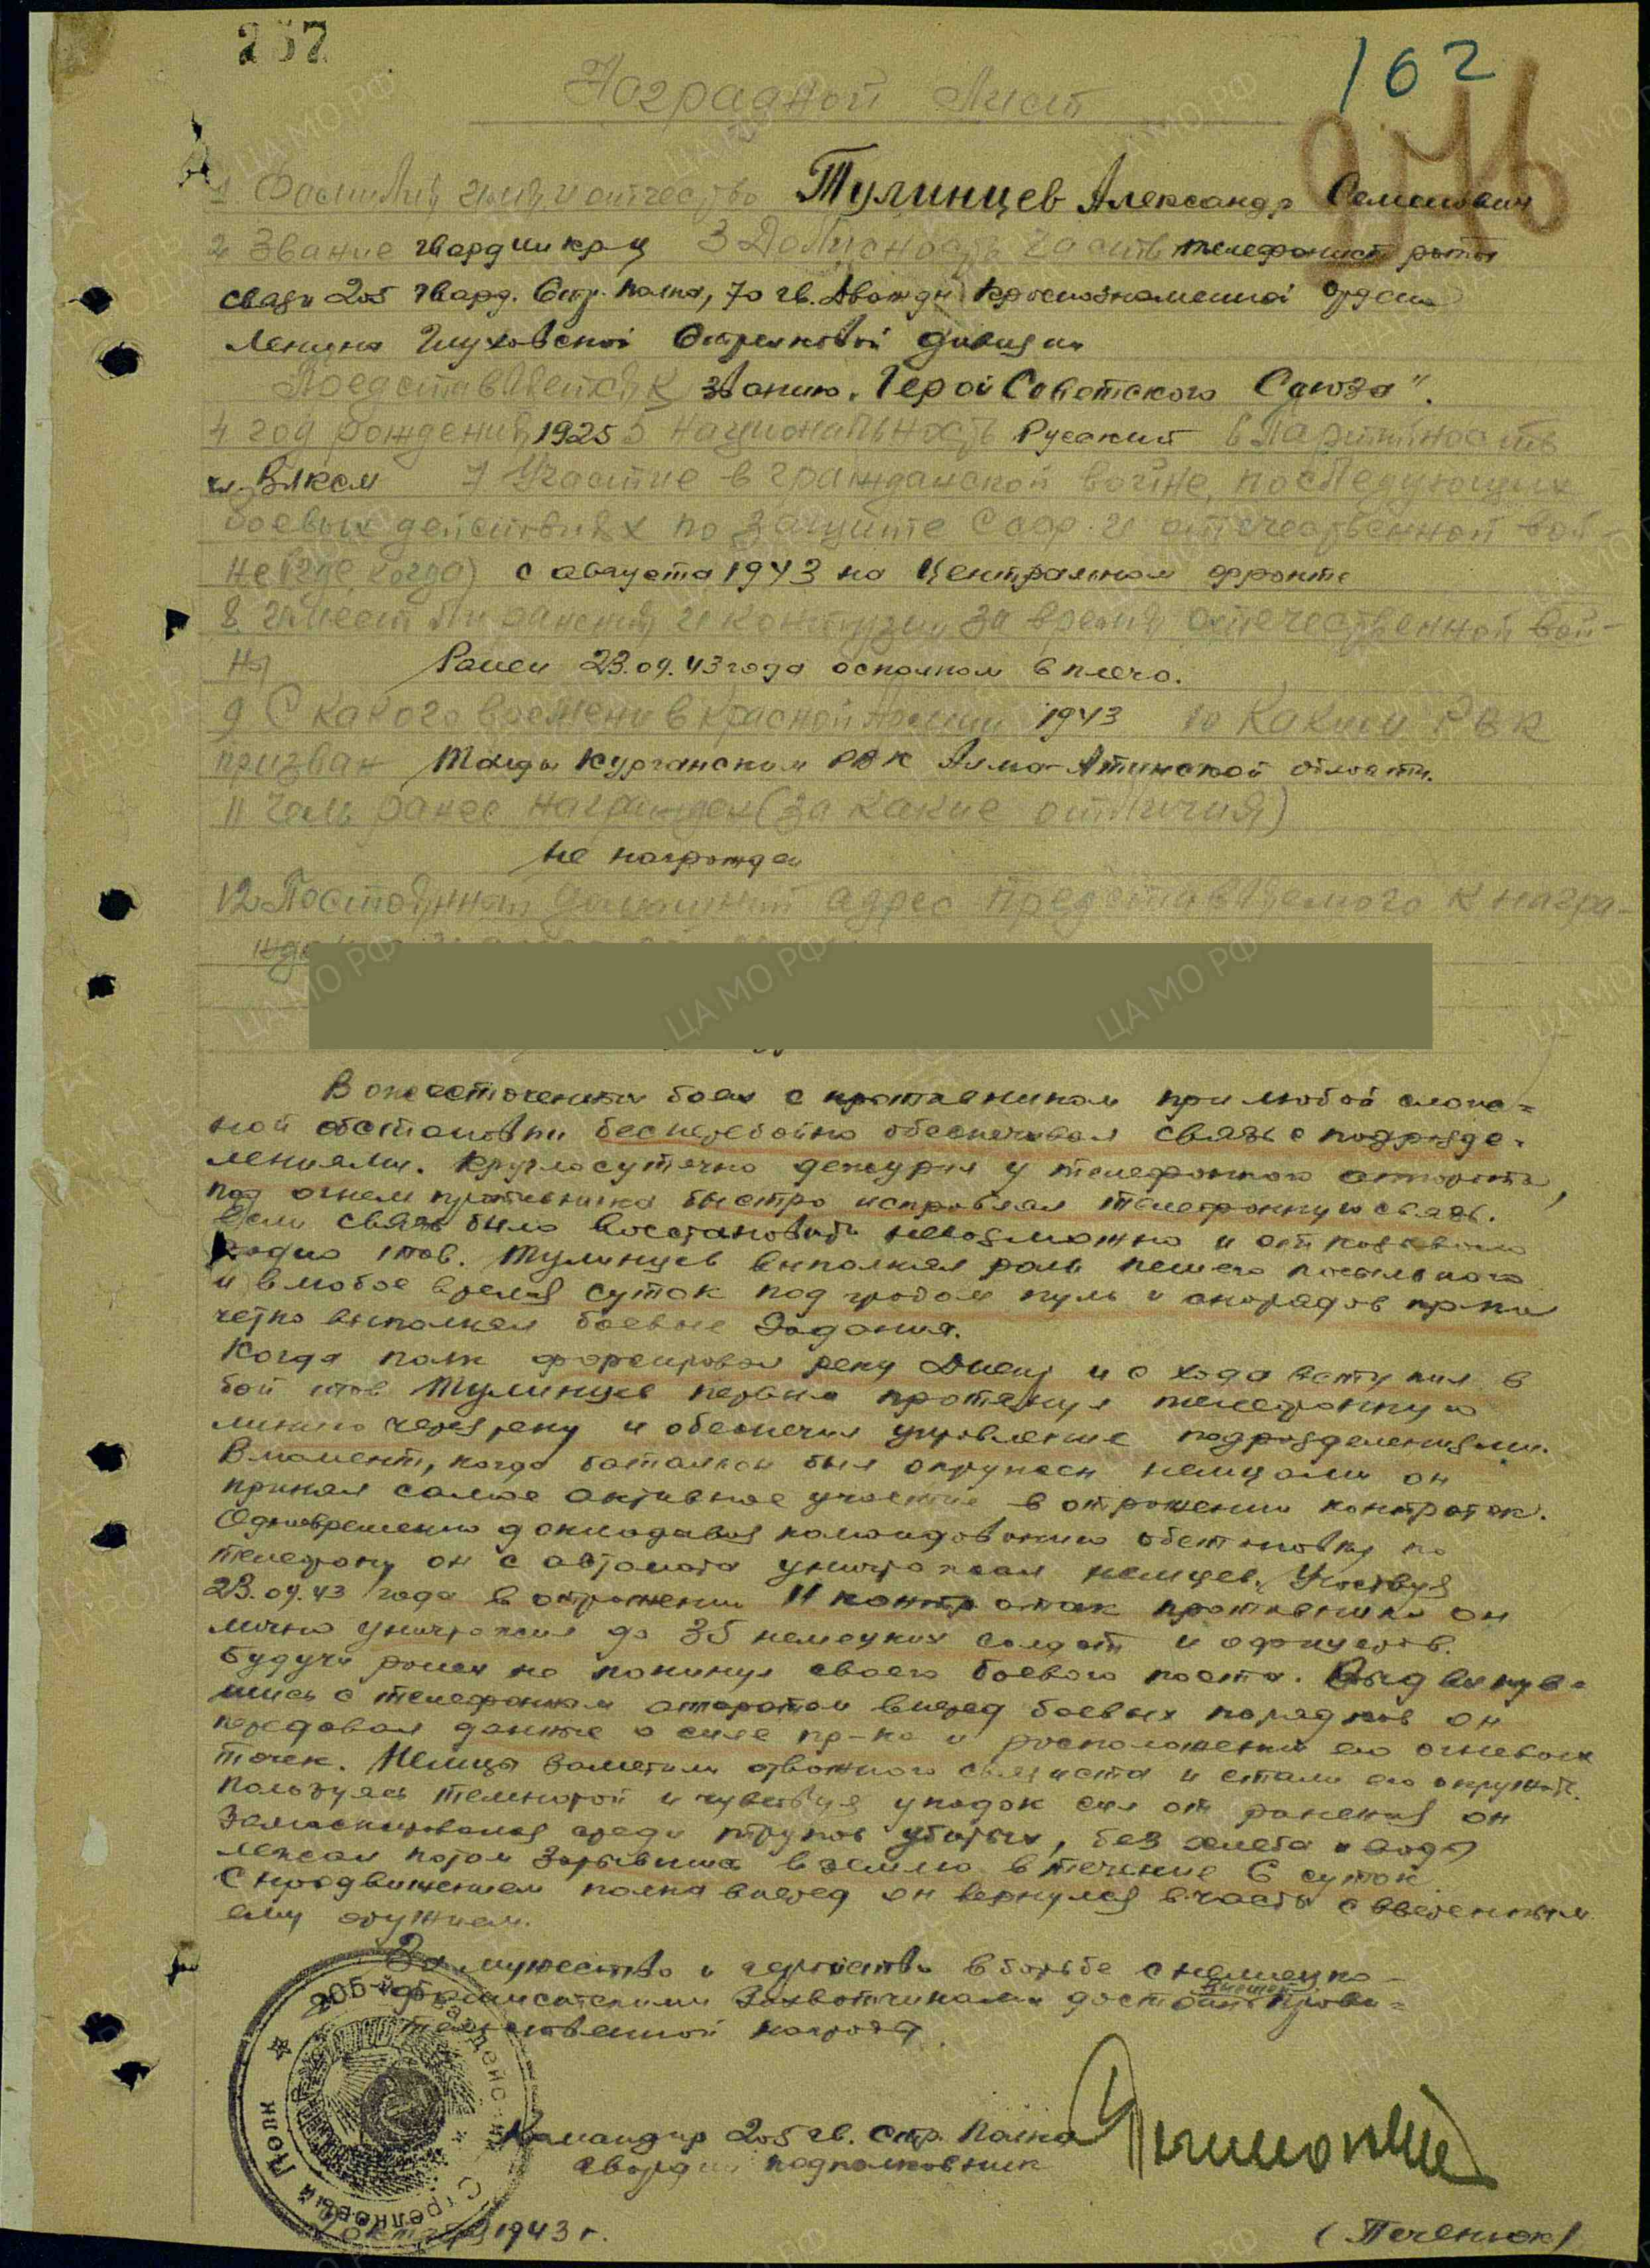 257
162
976
Наградной Лист
1 Фамилия, имя и отчество Тулинцев Александр Семенович
2 Звание гвардии кр-ц 3 Должность часть телефонист роты
связи 205 гвард. Стр. полка, 70 гв. дважды краснознаменной ордена
Ленина Глуховской Стрелковой дивизии
Представляется к званию "Герой Советского Союза".
4 год рождения 1925 5 национальность Русский 6 Партийность
чл. Влксм 7 Участие в гражданской войне, последующих
боевых действиях по защите Ссср и отечественной вой-
не (где, когда) с августа 1943 на Центральном фронте
8 имеет ли ранения и контузии за время отечественной вой-
ны Ранен 23.09.43 года осколком в плечо.
9 С какого времени в красной Армии 1943 10 Каким РВК
призван Талды Курганским РВК Алма-Атинской области.
11 Чем ранее награжден (за какие отличия)
не награжден
12 Постоянный домашний адрес представляемого к награ-
В ожесточенных боях с противником при любой слож-
ной обстановки бесперебойно обеспечивал связь с подразде-
лениями. Круглосуточно дежуря у телефонного аппарата,
под огнем противника быстро исправлял телефонную связь.
Если связь было восстановить невозможно и отказывало
Радио тов. Тулинцев выполнял роль пешего посыльного
и в любое время суток под градом пуль и снарядов пр-ка
четко выполнял боевые задания.
Когда полк форсировал реку Днепр и с хода вступил в
бой тов Тулинцев первым протянул телефонную
линию через реку и обеспечил управление подразделениями.
В момент, когда батальон был окружен немцами он
принял самое активное участие в отражении контратак.
Одновременно докладывая командованию обстановку по
телефону он с автомата уничтожал немцев. Участвуя
23.09.43 года в отражении 11 контратак противника он
лично уничтожил до 35 немецких солдат и офицеров.
Будучи ранен не покинул своего боевого поста. Выдвинув-
шись с телефонным аппаратом вперед боевых порядков он
передавал данные о силе пр-ка и расположении его огневых
точек. Немцы заметили отважного связиста и стали его окружать.
Пользуясь темнотой и чувствуя упадок сил от ранения он
замаскировался среди трупов убитых, без хлеба и воды
лежал потом зарывшись в землю в течение 6 суток
С продвижением полка вперед он вернулся в часть с вверенным
ему оружием.
За мужество и геройство в борьбе с немецко-
фашистскими захватчиками достоин прави-
тельственной награды
Командир 205 гв. Стр. Полка
гвардии подполковник
октября 1943 г.
(Печенюк)
205-й Гвардейский Стрелковый Полк
ЦА МО РФ